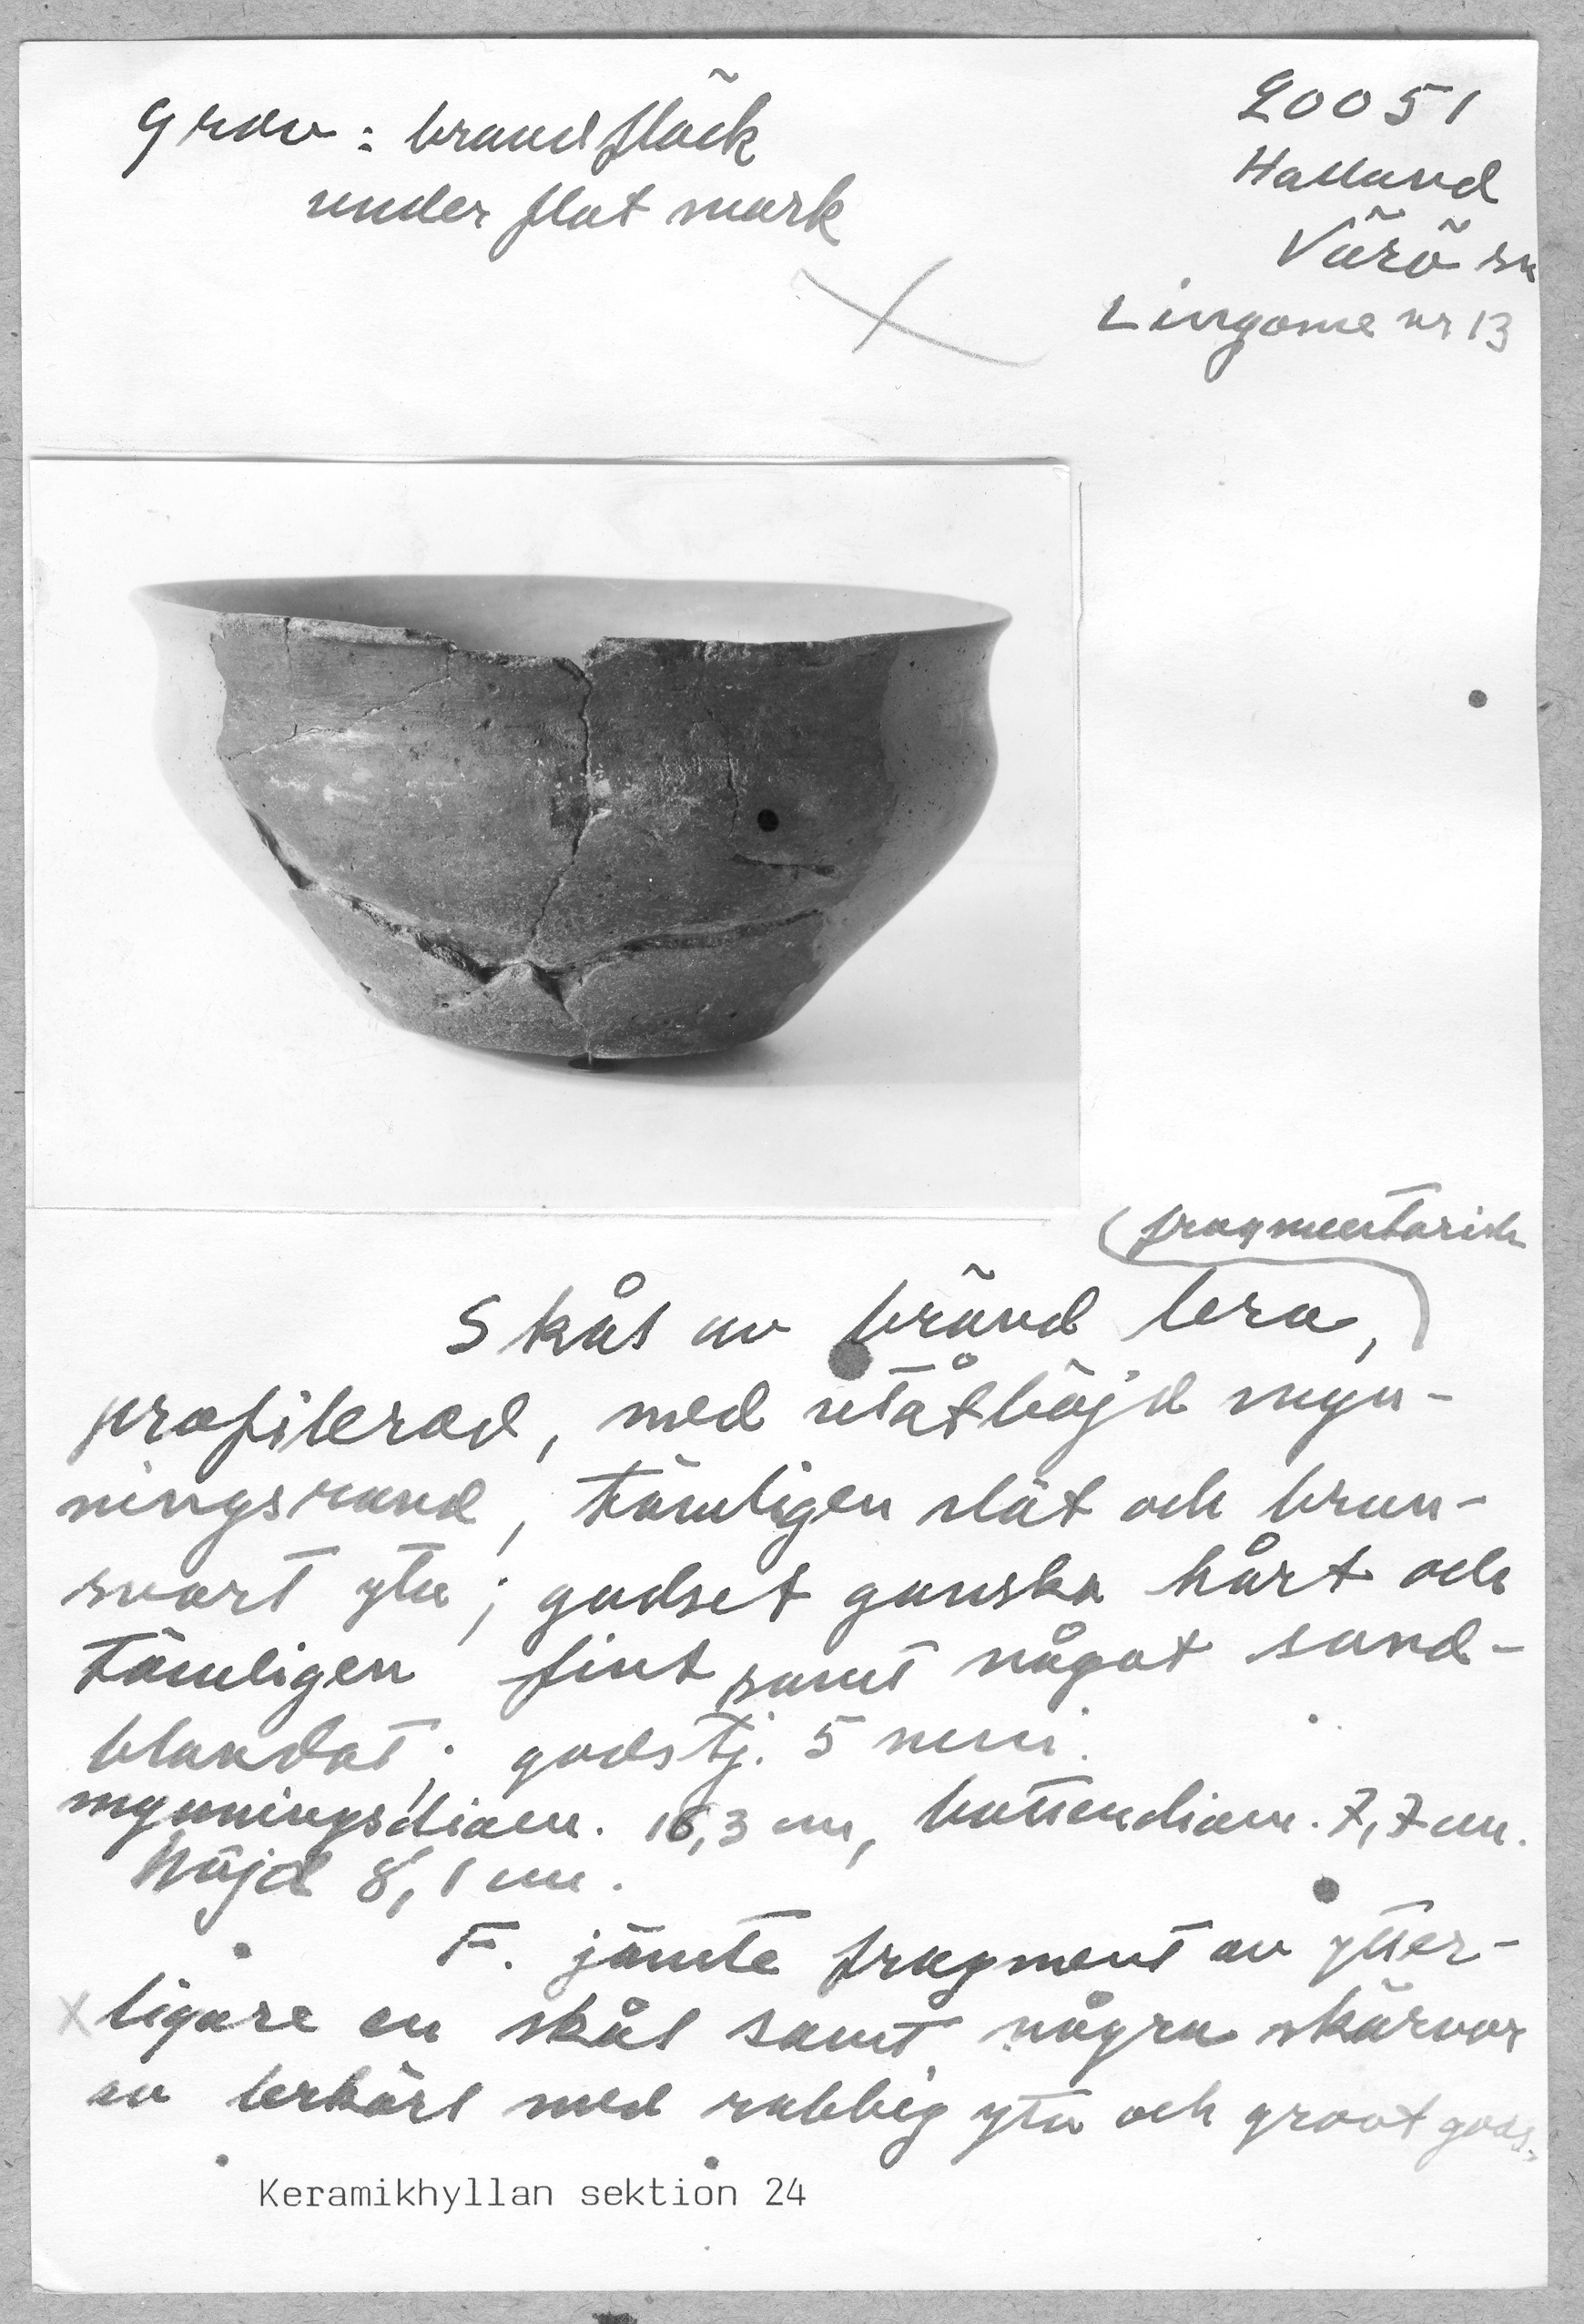 grav: brandfläck
under flat mark
20051
Halland
Värö sn
Lingome nr 13
fragmentarisk
Skål av bränd lera,
profilerad, med utåtböjd myn-
ningsrand, tämligen slät och brun-
svart yta; godset ganska hårt och
tämligen fint samt något sand-
blandat; godstj. 5 mm.
mynningsdiam. 16,3 cm, bottendiam. 7,7 cm.
Höjd 8,1 cm.
F. jämte fragment av ytter-
x ligare en skål samt några skärvor
av lerkärl med rabbig yta och grovt gods.
Keramikhyllan sektion 24